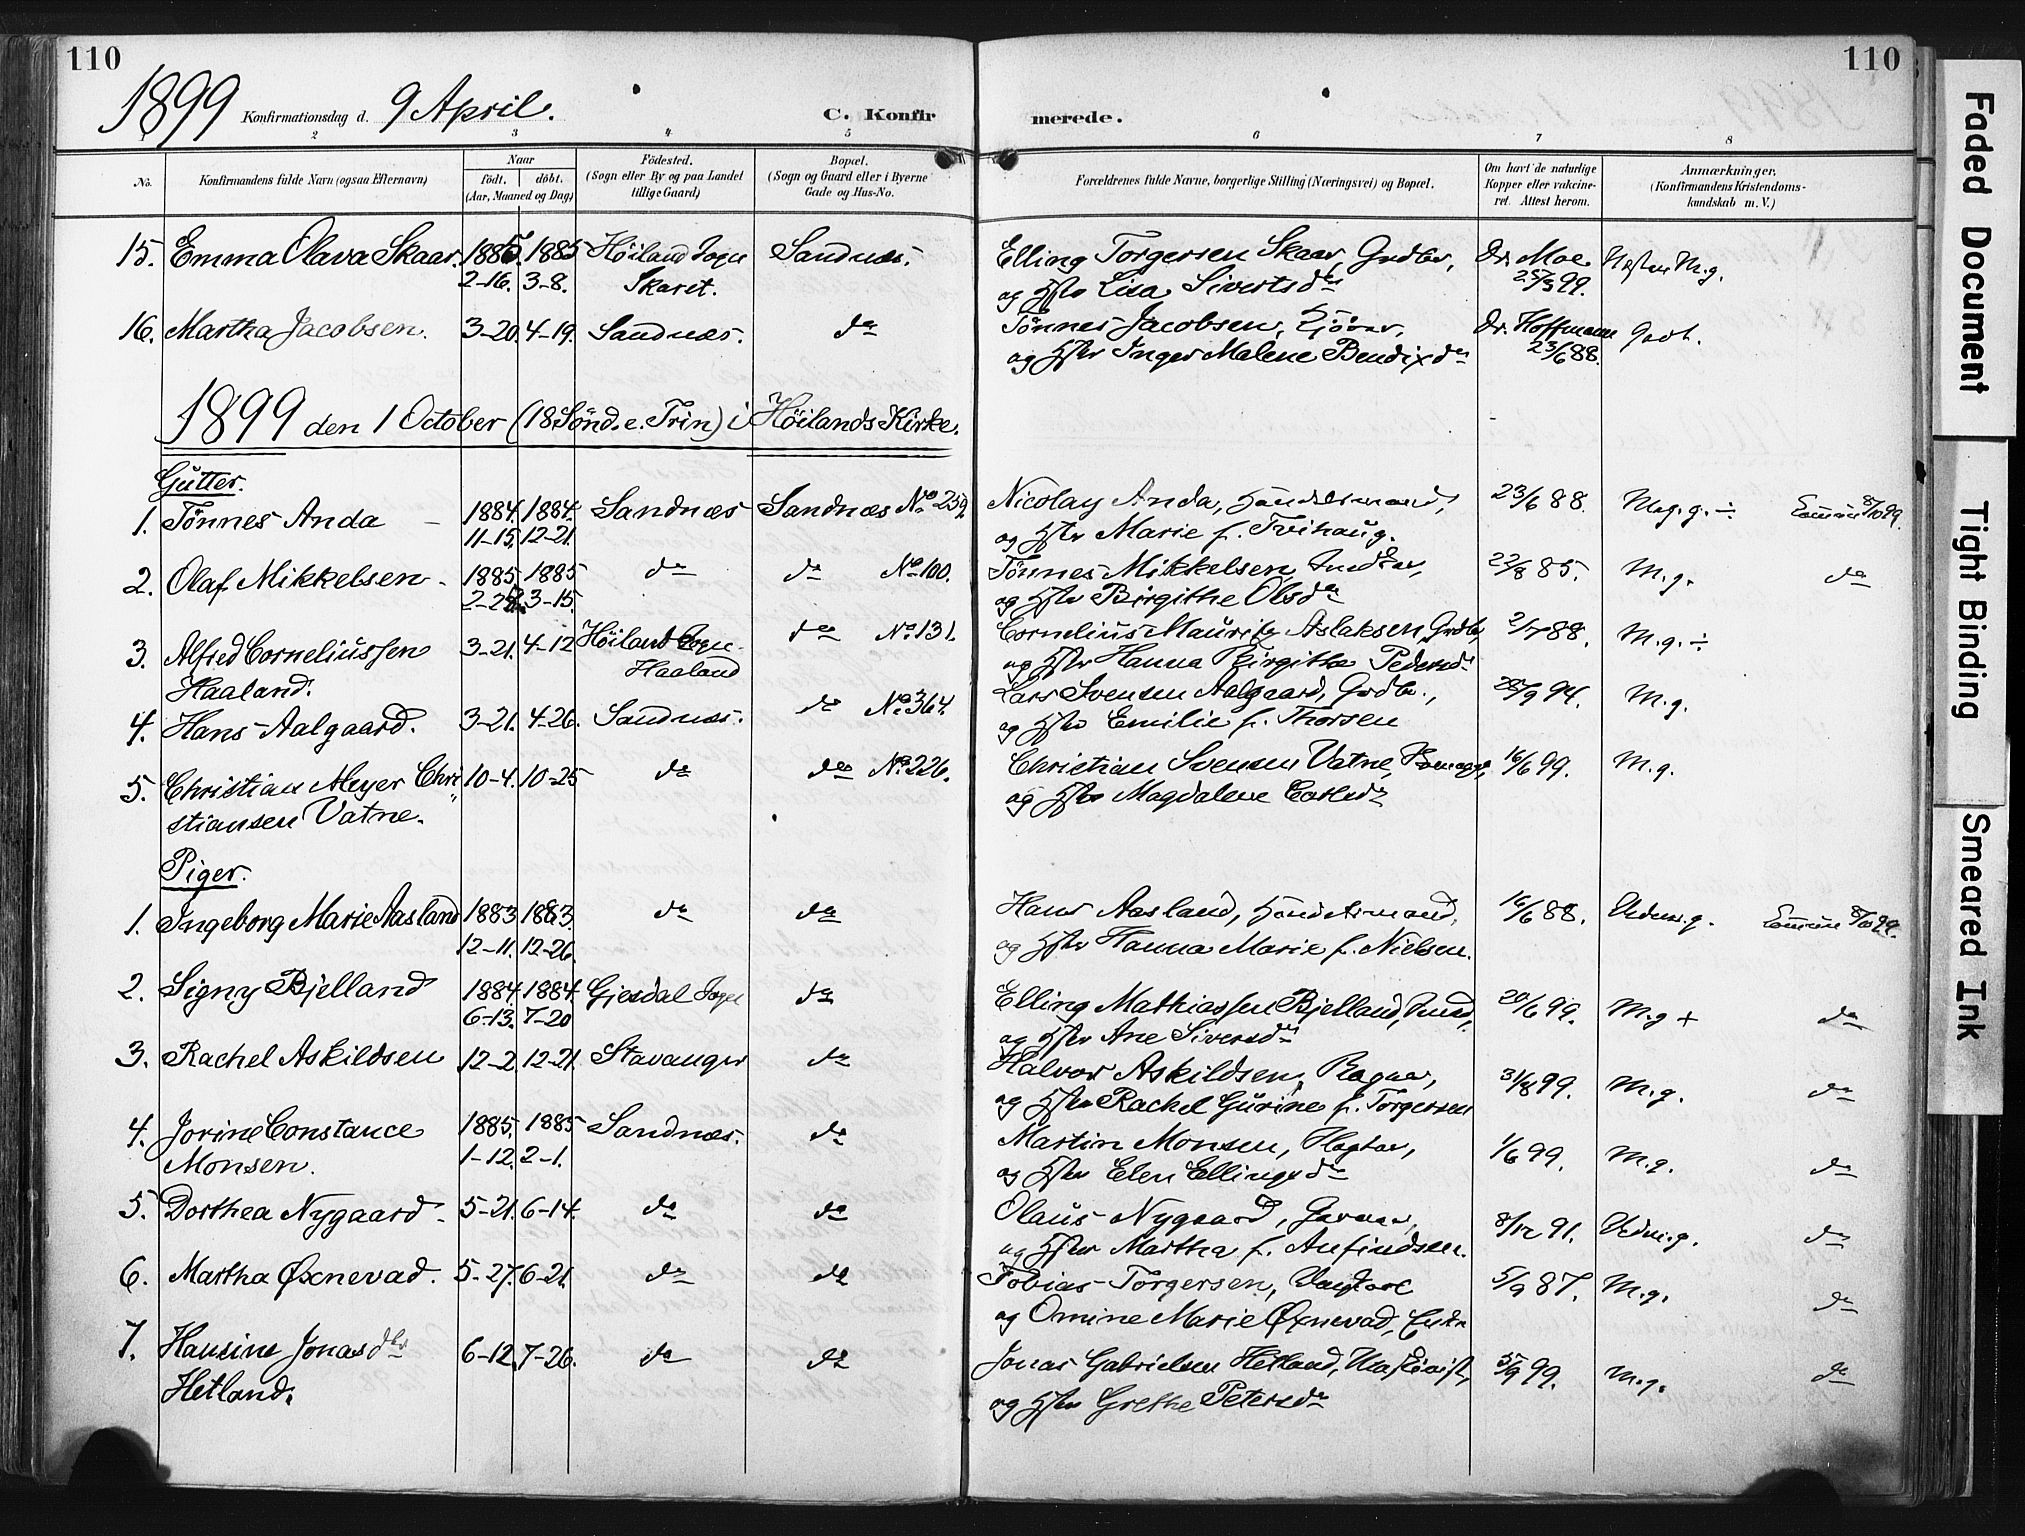 110
110
1899 Konfirmationsdag d. 9 April.
C. Konfirmerede.
1 2 3 4 5 6 7 8
No. Konfirmandens fulde Navn (ogsaa Efternavn) Naar født. døbt. (Aar, Maaned og Dag) Födested. (Sogn eller By og paa Landet tillige Gaard) Bopæl. (Sogn og Gaard eller i Byerne Gade og Hus-No. Forældrenes fulde Navne, borgerlige Stilling (Næringsvei) og Bopæl. Om havt de naturlige Kopper eller vakcineret. Attest herom. Anmærkninger, (Konfirmandens Kristendomskundskab m. V.)
15. Emma Olava Skaar. 1885. 1885 Höiland Sogn Sandnæs. Elling Torgersen Skaar, Grdbr, Dr. Moe Næsten M.g.
2-16. 3-8. Skaret. og Hstr Lisa Sivertsdr 25/3 99.
16. Martha Jacobsen. 3-20. 4-19. Sandnæs. do Tönnes Jacobsen, Dr. Hoffmann Godt.
og Hstr Inger Malene Bendixdr 23/6 88.
1899 den 1 October (18 Sönd. e. Trin) i Höilands Kirke.
Gutter.
1. Tönnes Anda 1884. 1884. Sandnæs Sandnæs No 259. Nicolay Anda, Handelsmand, 23/6 88. Meg. g. ÷ 8/10 99.
11-15. 12-21. og Hstr Marie f. Tvihaug.
2. Olaf Mikkelsen. 1885. 1885 do do No 100. Tönnes Mikkelsen 85. M.g. do
3-15. og Hstr Birgithe Olsdr
3. Alfred Corneliussen 3-21. 4-12 Höiland Sogn do No. 131. Cornelius Mauritz Aslaksen, Grdbr, 2/7 88. M.g. ÷
Haaland. Haaland og Hstr Hanna Birgithe Pedersdr
4. Hans Aalgaard. 3-21. 4-26. Sandnæs. do No 364. Lars Svensen Aalgaard, Grdbr., 94. M.g.
og Hstr Emilie f. Thorsen
5. Christian Meyer Chri- 10-4. 10-25 do do No. 226. Christian Svensen Vatne, 16/6 99. M.g.
stiansen Vatne. og Hstr Magdalene
Piger.
1. Ingeborg Marie Aasland 1883 1883. do do Hans Aasland, Handelsmand, 16/6 88. Udm.g. 8/10 99.
12-11. 12-26. og Hstr Hanna Marie f. Nielsen.
2. Signy Bjelland 1884. 1884. Gjesdal Sogn do Elling Mathiassen Bjelland, 20/6 99. M.g + do
6-13. 7-20 og Hstr Ane Siversdr
3. Rachel Askildsen 12-2. 12-21. Stavanger do Halvor Askildsen, Bager, 31/8 99. M.g. do
og Hstr Rachel Gurine f. Torgersen
4. Jorine Constance 1885. 1885 Sandnæs. do Martin Monsen, 1/6 99. M.g. do
Monsen. 1-12. 2-1. og Hstr Elen Ellingsdr
5. Dorthea Nygaard. 5-21. 6-14. do do Olaus Nygaard, Garver, 8/12 91. Udm.g. do
og Hstr Martha f. Anfindsen.
6. Martha Øxnevad. 5-27. 6-21. do do Tobias Torgersen, Ungkarl 5/9 87. M.g. do
og Omine Marie Øxnevad, Enke
7. Hansine Jonasdtr 6-12. 7-26. do do Jonas Gabrielsen Hetland, 5/9 99. M.g. do
Hetland. og Hstr Grethe Petersdr
Faded Document
Tight Binding
Smeared Ink